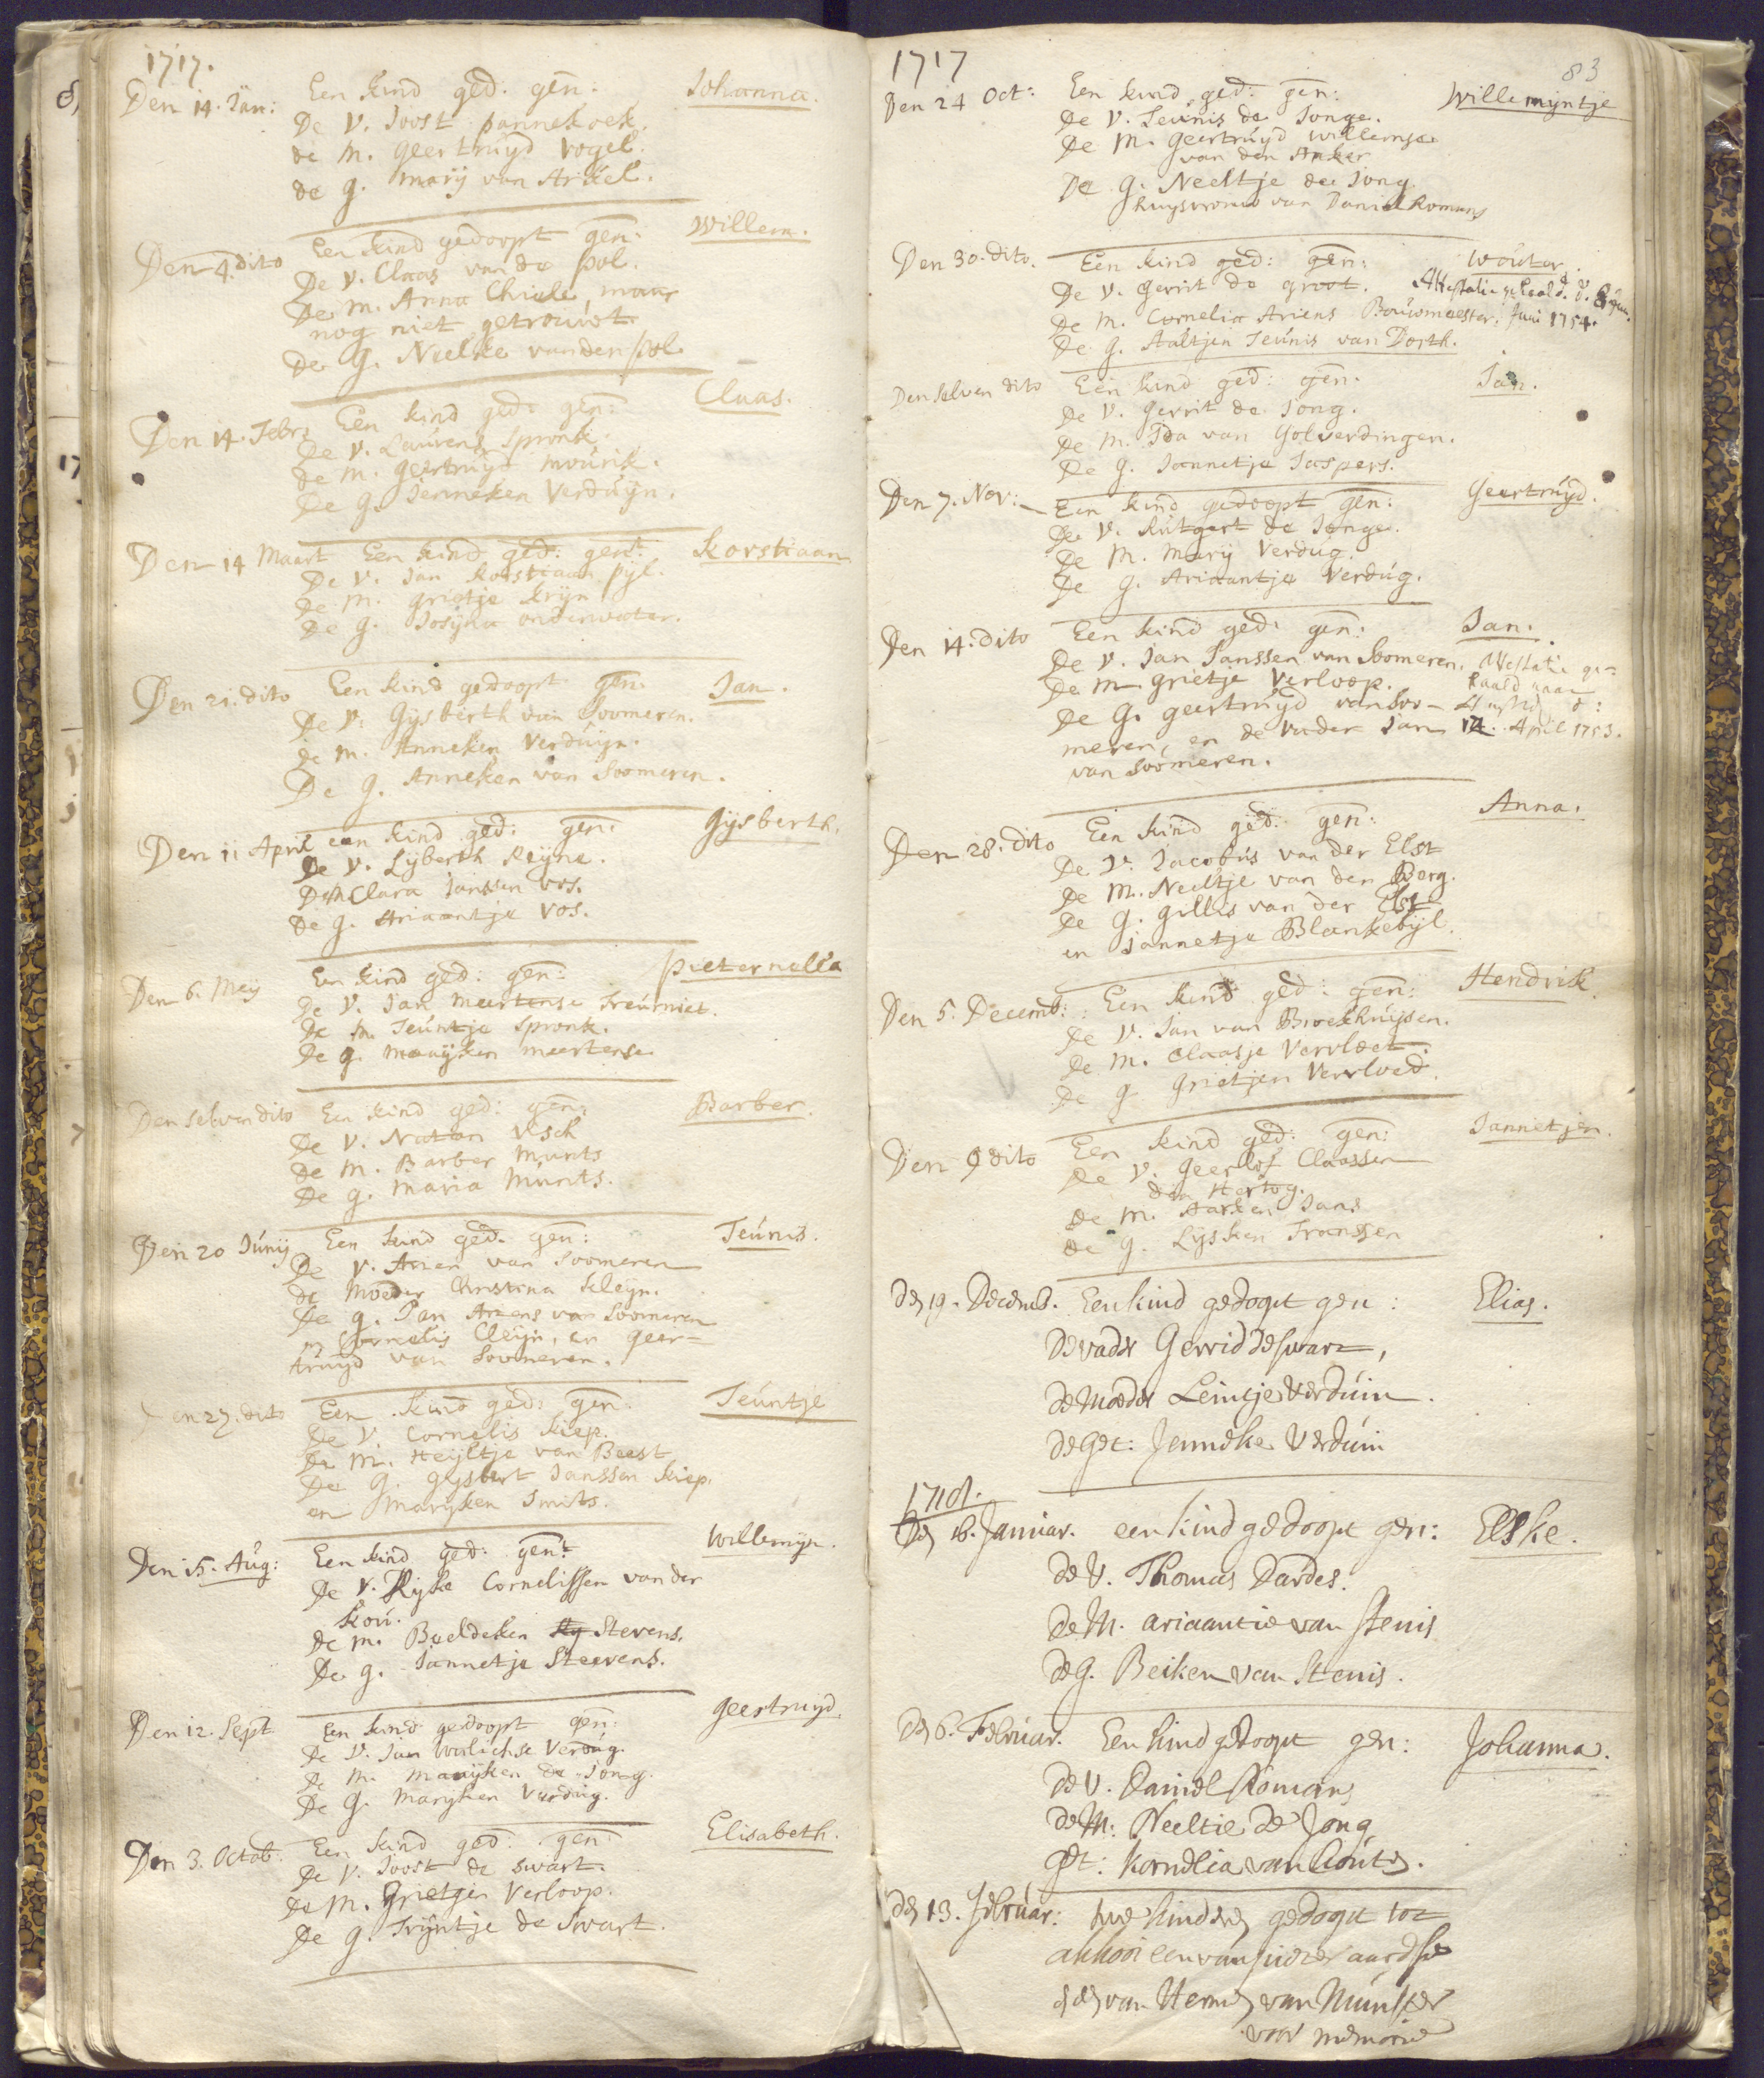 1717.
Den 14. Jan: Een kind ged: gen: Johanna.
De V. Joost pannekoek.
de M. Geertruyd Vogel.
de g. Marij van Arkel.
Den 4. dito Een kind gedoopt gen: Willem.
De V. Claas van de pol.
De M. Anna Chiele, maar
nog niet getrouwt.
De g. Neelke vanden pol.
Den 14. Febr: Een kind ged: gen: Claas.
De V. Laurens Spronk.
de M. Geertruyd Mourik.
De g. Jenneken Verduyn.
Den 14 Maart Een kind ged: gent: Korstiaan
De V. Jan Korstiaan pijl.
De M. grietje Krijn
De g. Josijna onderwater.
Den 21. dito Een kind gedoopt gen: Jan.
De V. Gijsberth van Soomeren.
de M. Anneken Verduijn.
De g. Anneken van Soomeren.
Den 11 April een kind ged: gen: Gijsberth.
De V. Lijberth Reyne.
De M Clara Janssen Vos.
De g. Ariaantje Vos.
Den 6. Meij Een kind ged: gen: Pieternella
De V. Jan Meertense Treurniet.
De M. Teuntje Spronk.
De g. Maaijken Meertense
Den selven dito Een kind ged: gen: Barber.
De V. Natan Visch
de M. Barber Munts
De g. Maria Munts.
Den 20 Junij Een kind ged: gen: Teunis.
De V. Arien van Soomeren
de Moeder Christina Kleijn.
De g. Jan Ariens van Soomeren
en Cornelis Cleijn, en geer-
truyd van Soomeren.
Den 27. dito Een kind ged: gen: Teuntje
De V. Cornelis Kiep.
De M. Heyltje van Beest
De G. Gijsbert Janssen Kiep.
en Marijken Smits.
Den 15. Aug: Een kind ged: gent: Willemijn.
De V. Rijke Cornelissen van der
Kou.
De M. Beeldeken Stevens.
De g. Jannetje Steevens.
Den 12. Sept Een kind gedoopt gen: Geertruijd.
De V. Jan Verdug.
De M. Maaijken de Jong.
De G. Marijken Verdug.
Den 3. Octob. Een kind ged: gen: Elisabeth.
De V. Joost de Swart.
De M. Grietjen Verloop.
De g. Trijntje de Swart.
1717 83
Den 24 Oct: Een kind ged: gen: Willemijntje
De V. Teunis de Jonge.
De M. Geertruyd Willemse
van den Anker
De g. Neeltje de Jong
huysvrouw van Daniel Romans
Den 30. dito. Een kind ged: gen: Wouter.
De V. Gerrit de groot. Attestatie gehaald d. 8 Jun.
De M. Cornelia Ariens Bouwmeester. Juni 1754.
De g. Aaltjen Teunis van Dorth.
Den selven dito Een kind ged: gen: Jan.
De V. Gerrit de Jong.
De M. Ida van Golverdingen.
De g. Jannetje Jaspers.
Den 7. Nov: Een kind gedoopt gen: Geertruyd.
De V. Rutgert de Jonge.
De M. Marij Verdug.
De g. Ariaantje Verdug.
Den 14. dito Een kind ged: gen: Jan.
De V. Jan Janssen van Soomeren. Attestatie ge-
De M. Grietje Verloop. haald naar
De G. geertruyd van Soo- d:
meren, en de Vader Jan 14. April 1753.
van Soomeren.
Den 28. dito Een kind ged: gen: Anna.
De V. Jacobus van der Elst
De M. Neeltje van den Berg.
De g. Gillis van der Elst
en Jannetje Blankebijl.
Den 5. Decemb: Een kind ged: gen: Hendrik.
De V. Jan van Broekhuysen.
De M. Claasje Vervloet.
De g Grietjen Vervloed.
Den 9 dito Een kind ged: gen: Jannetjen.
De V. Geerlof Claassen
den Hertog.
De M. Aarken Jans
de g. Lijsken Franssen
Den 19. Decemb. Een kind gedoopt gen: Elias.
de vader Gerrid de Swart,
de Moeder Leintje Verduin.
de Get: Jenneke Verduin
1718.
Den 16. Januar. een kind gedoopt gen: Elske.
de V. Thomas Dardes.
de M. ariaantie van Stenis
de G. Beiken van Stenis.
Den 6. Februar. Een kind gedoopt gen: Johanna.
de V. Daniel Romans
de M: Neeltie de Jong
Get: Kornelia van Houten.
Den 13. Februar: twe kinderen gedoopt tot
akkooi een van aardse
en een van Hermen van Munster
voor memorie